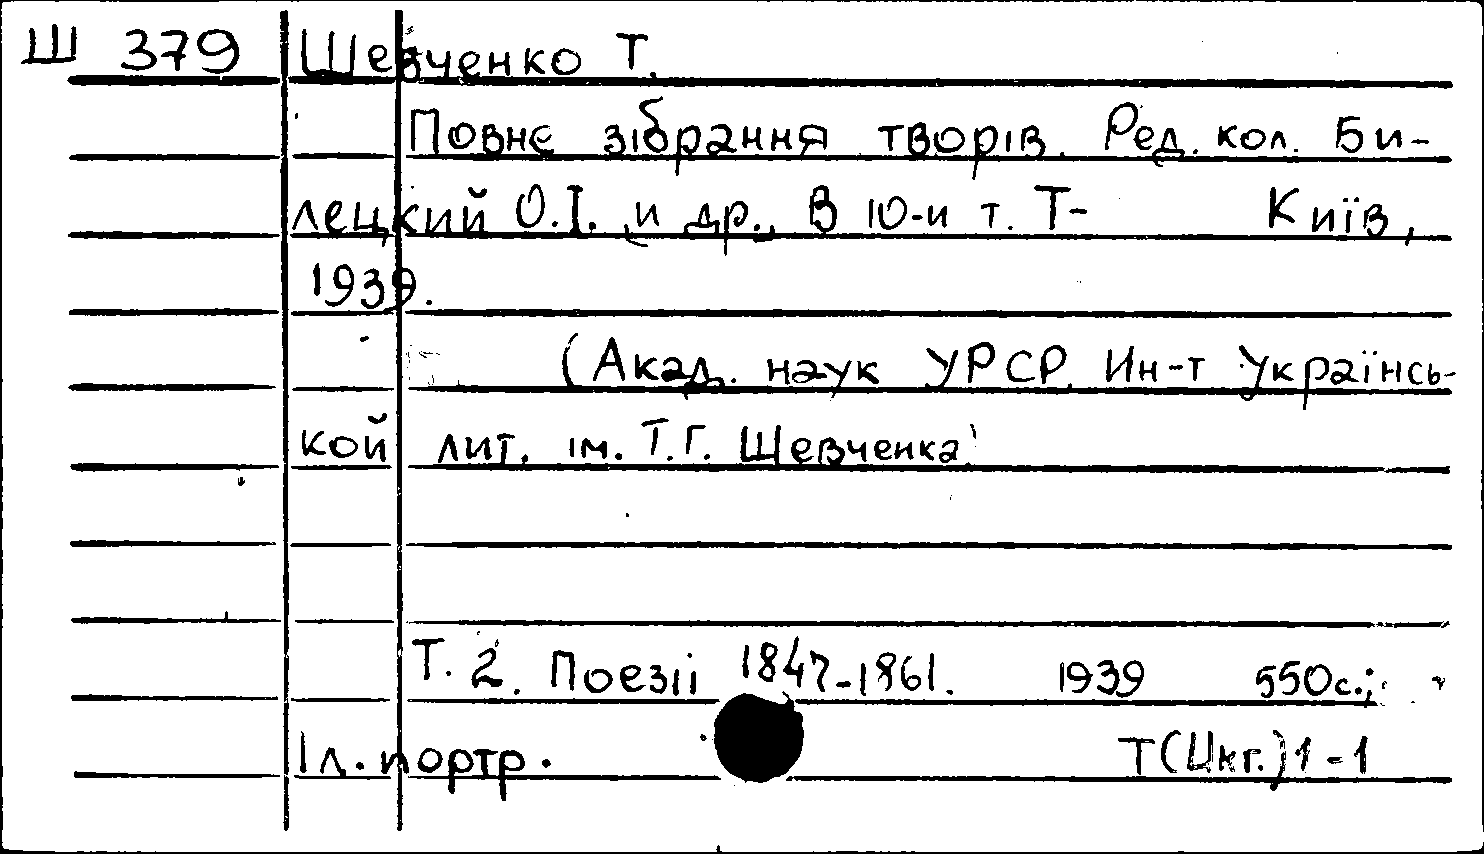 Ш 379 Шевченко Т.
Повне зібрання творів. Ред. кол. Би-
лецкий О.І. и др., В 10-и т. Т- Київ,
1939.
(Акад. наук УРСР. Ин-т Українсь-
кой лит. ім. Т.Г. Шевченка)
Т. 2. Поезіі 1847-1861. 1939 550с.;
Іл. портр.
Т(Цкг.)1-1